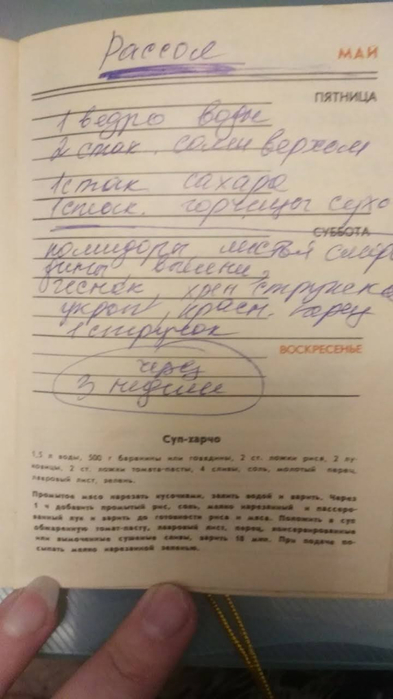 Рассол
МАЙ
ПЯТНИЦА
1 ведро воды
2 стак. соли верхом
1 стак сахара
1 стак. горчицы сухо
СУББОТА
помидоры, листья сморо
дины, вишени,
чеснок, хрен стружка
укроп, красн. перец
1 стручок
ВОСКРЕСЕНЬЕ
через
3 недели
Суп-харчо
1,5 л воды, 500 г баранины или говядины, 2 ст. ложки риса, 2 лу-
ковицы, 2 ст. ложки томата-пасты, 4 сливы, соль, молотый перец,
лавровый лист, зелень.
Промытое мясо нарезать кусочками, залить водой и варить. Через
1 ч добавить промытый рис, соль, мелко нарезанный и пассеро-
ванный лук и варить до готовности риса и мяса. Положить в суп
обжаренную томат-пасту, лавровый лист, перец, консервированные
или вымоченные сушеные сливы, варить 10 мин. При подаче по-
сыпать мелко нарезанной зеленью.